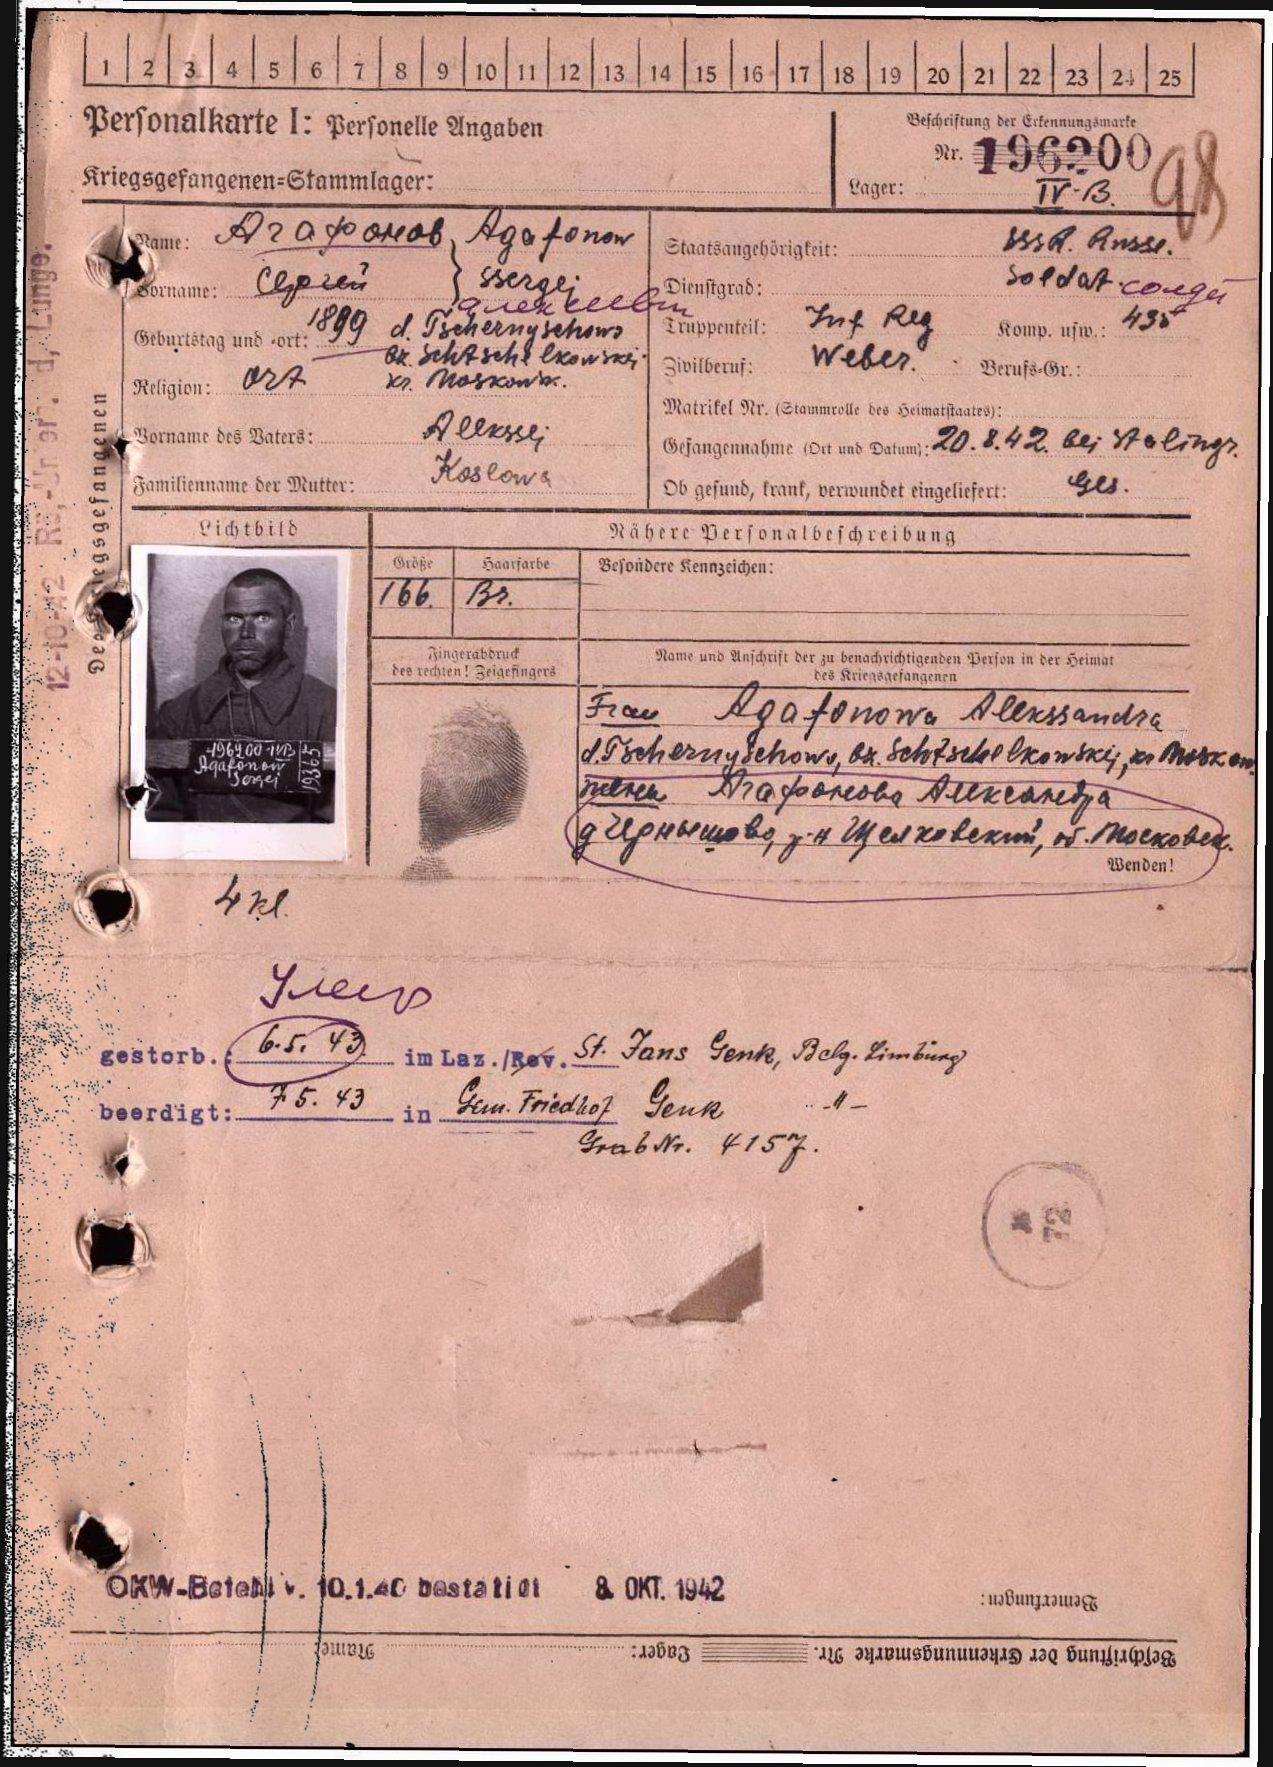 1 2 3 4 5 6 7 8 9 10 11 12 13 14 15 16 17 18 19 20 21 22 23 24 25
Personalkarte I: Personelle Angaben
Kriegsgefangenen=Stammlager:
Beschriftung der Erkennungsmarke
Nr. 196200
Lager: IV-B.
98
Name: Агафонов, Agafonow
Vorname: Сергей } Ssergej
Алексеевич
Geburtstag und -ort: 1899 d. Tschernyschowo
bz. Schtschelkowskij
kr. Moskowsk.
Religion: Ort
Vorname des Vaters: Alekssej
Familienname der Mutter: Koslowa
Staatsangehörigkeit: SSSR. Russe.
Dienstgrad: Soldat солдат
Truppenteil: Inf Reg Komp. usw.: 435
Zivilberuf: Weber. Berufs-Gr.:
Matrikel Nr. (Stammrolle des Heimatstaates):
Gefangennahme (Ort und Datum): 20.8.42. bei Stalingr.
Ob gesund, krank, verwundet eingeliefert: Ges.
Des Kriegsgefangenen
12-10-42 d. Lunge.
Lichtbild
Nähere Personalbeschreibung
Größe Haarfarbe Besondere Kennzeichen:
166. Br.
Fingerabdruck
des rechten! Zeigefingers
Name und Anschrift der zu benachrichtigenden Person in der Heimat
des Kriegsgefangenen
Frau Agafonowa Alekssandra
d. Tschernyschowo, bz. Schtschelkowskij, kr Moskow.
жена Агафонова Александра
д Чернышово, р-н Щелковский, об. Московск.
Wenden!
196200 IVB
Agafonow
Sergej
4 kl.
Умер
gestorb.: 6.5. 43 im Laz./Rev. St. Jans Genk, Belg. Limburg
beerdigt: 7 5. 43 in Gem. Friedhof Genk -"-
Grab Nr. 4157.
72
OKW-Befehl v. 10.1.40 bestätigt 8. OKT. 1942
Bemerkungen:
Beschriftung der Erkennungsmarke Nr. Lager: Name: